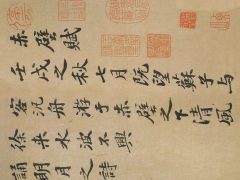 赤壁賦
壬戌之秋七月既望蘇子與
客泛舟游于赤壁之下清風
徐来水波不興
誦明月之詩